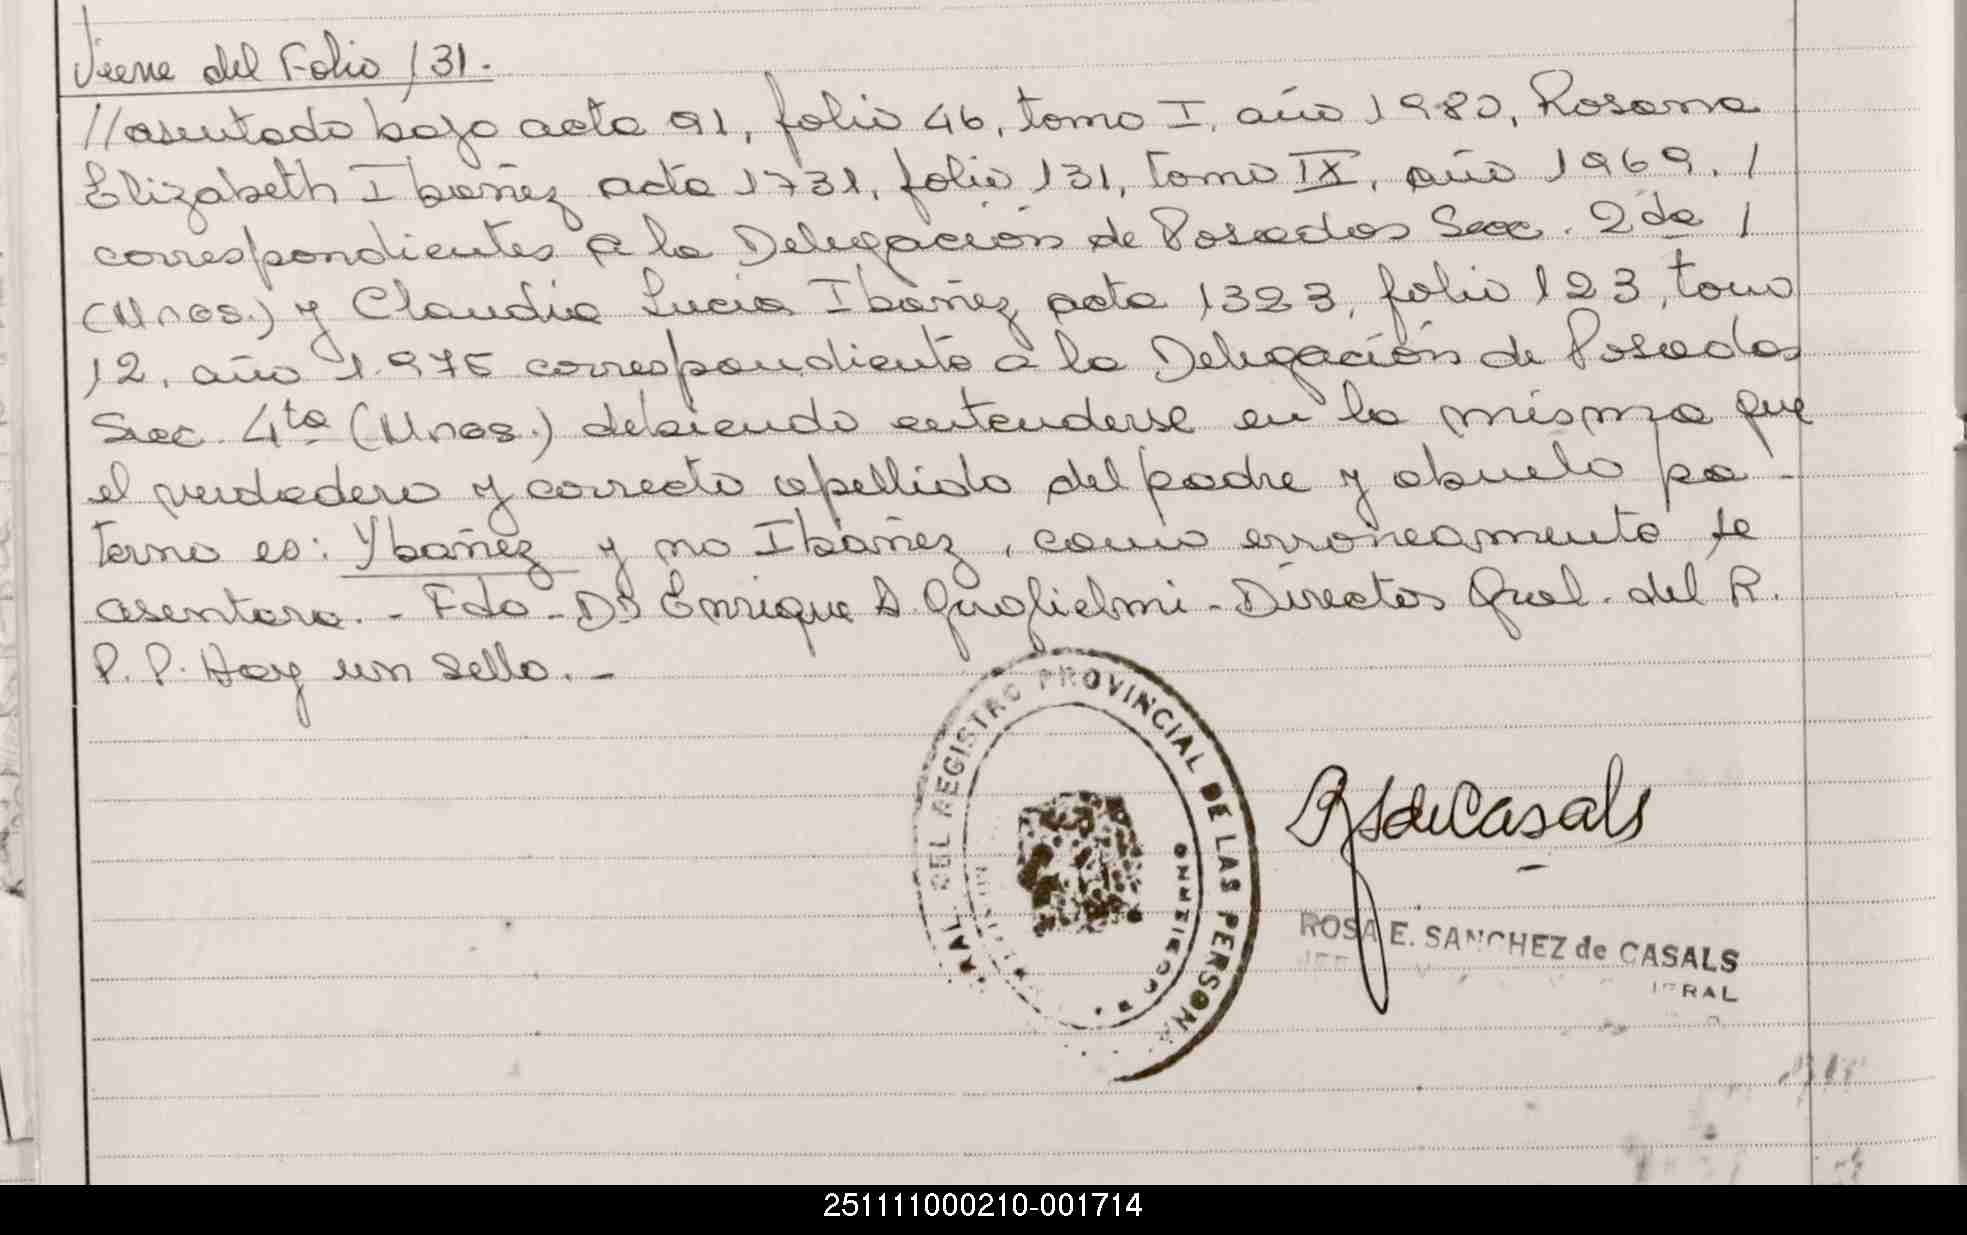 Viene del Folio 131.
//asentado bajo acta 91, folio 46, tomo I, año 1980, Rosana
Elizabeth Ibañez acta 1731, folio 131, tomo IX, año 1969. /
correspondientes a la Delegación de Posadas Secc. 2da /
(Mnes.) y Claudia Lucia Ibañez acta 1323, folio 123, tomo
12, año 1.975 correspondiente a la Delegación de Posadas
Secc. 4ta (Mnes.) debiendo entenderse en la misma que
el verdadero y correcto apellido del padre y abuelo pa-
terno es: Ybañez y no Ibañez, como erroneamente se
asentara. - Fdo - Dr Enrique A. Guglielmi - Director Gral. del R.
P. P. Hay un sello. -
RAL. DEL REGISTRO PROVINCIAL DE LAS PERSONA
RSdeCasals
ROSA E. SANCHEZ de CASALS
RAL
251111000210-001714